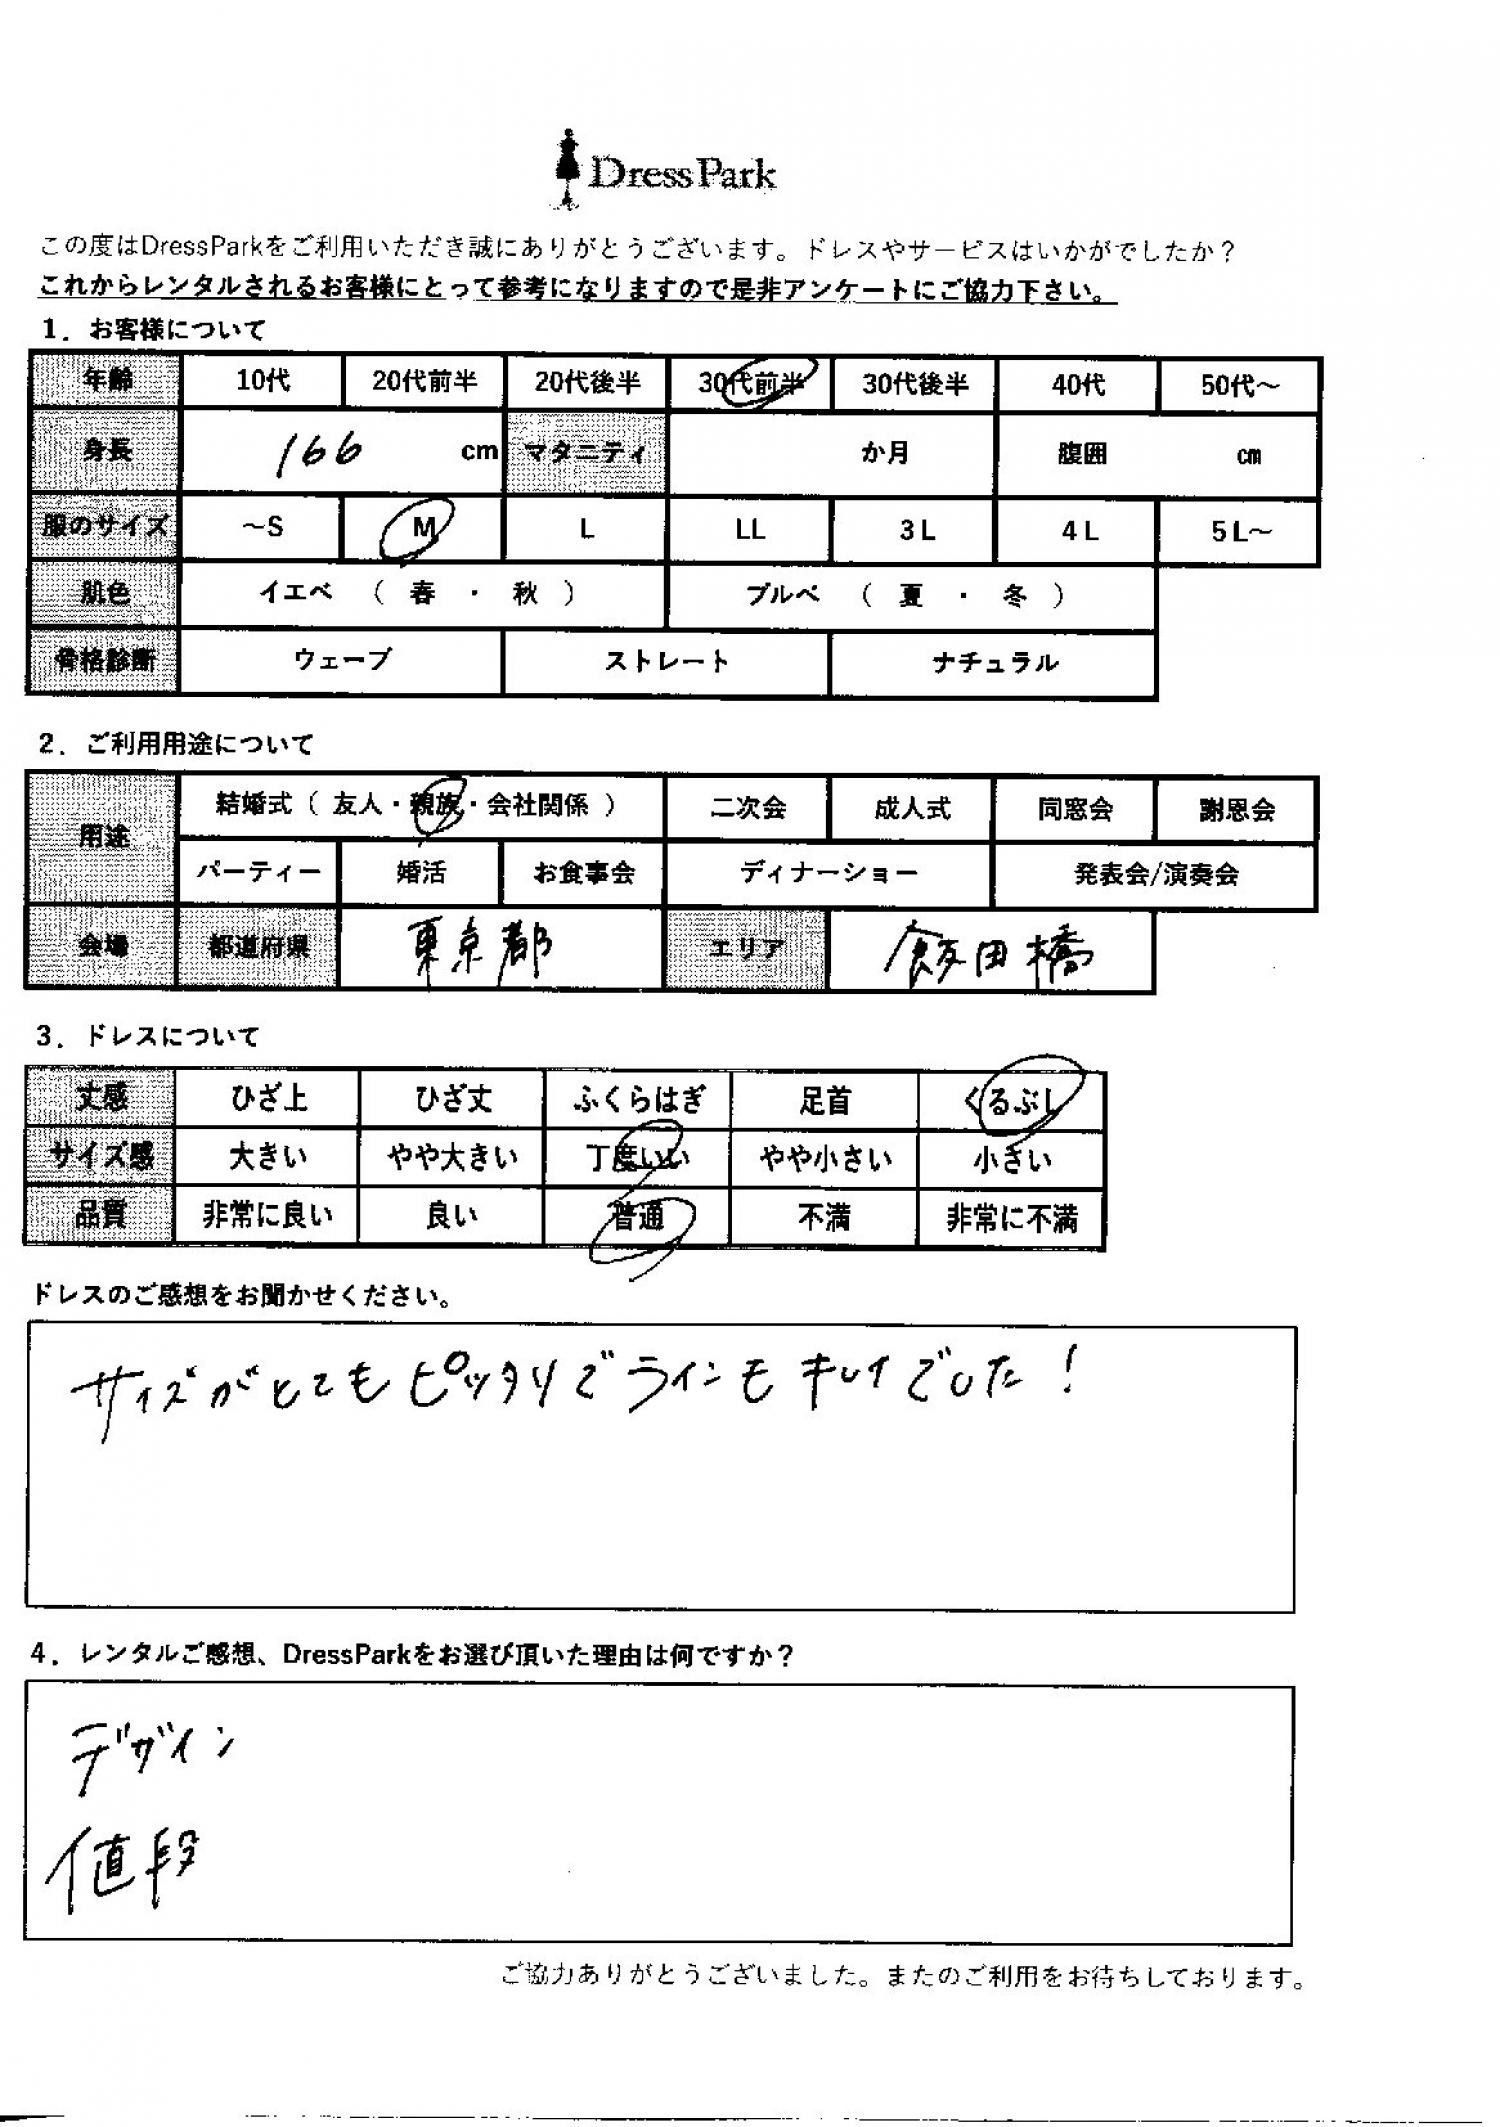 DressPark
この度はDressParkをご利用いただき誠にありがとうございます。ドレスやサービスはいかがでしたか?
これからレンタルされるお客様にとって参考になりますので是非アンケートにご協力下さい。
1．お客様について
年齢 10代 20代前半 20代後半 30代前半 30代後半 40代 50代～
身長 166 cm マタニティ か月 腹囲 cm
服のサイズ ～S M L LL 3L 4L 5L～
肌色 イエベ （ 春 ・ 秋 ） ブルベ （ 夏 ・ 冬 ）
骨格診断 ウェーブ ストレート ナチュラル
2．ご利用用途について
用途 結婚式（ 友人・親族・会社関係 ） 二次会 成人式 同窓会 謝恩会
パーティー 婚活 お食事会 ディナーショー 発表会/演奏会
会場 都道府県 東京都 エリア 飯田橋
3．ドレスについて
丈感 ひざ上 ひざ丈 ふくらはぎ 足首 くるぶし
サイズ感 大きい やや大きい 丁度いい やや小さい 小さい
品質 非常に良い 良い 普通 不満 非常に不満
ドレスのご感想をお聞かせください。
サイズがとてもピッタリでラインもキレイでした！
4．レンタルご感想、DressParkをお選び頂いた理由は何ですか？
デザイン
値段
ご協力ありがとうございました。またのご利用をお待ちしております。